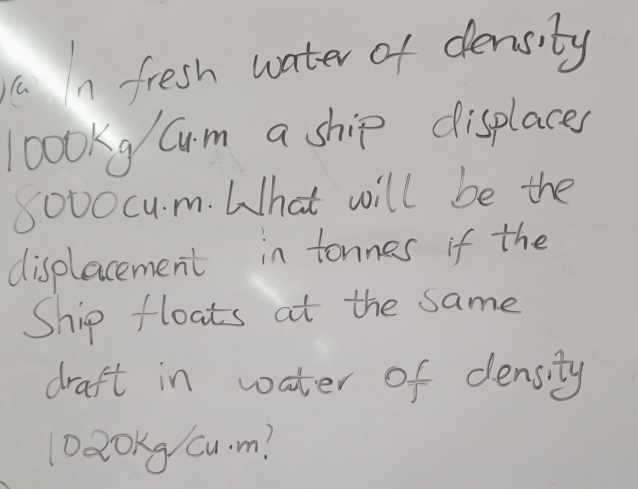 (a) In fresh water of density
1000Kg/Cu.m a ship displaces
8000cu.m. What will be the
displacement in tonnes if the
Ship floats at the same
draft in water of density
1020kg/cu.m?